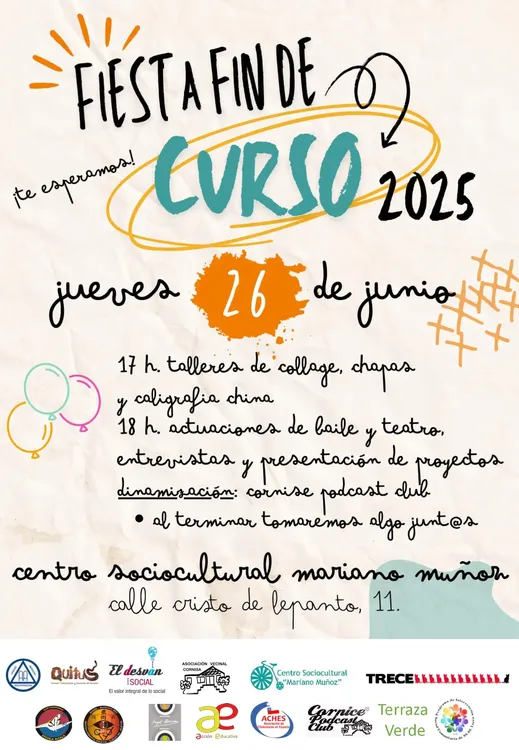 FIESTA FIN DE
CURSO
¡te esperamos!
2025
jueves 26 de junio
17 h. talleres de collage, chapas
y caligrafía china
18 h. actuaciones de baile y teatro,
entrevistas y presentación de proyectos
dinamización: cornise podcast club
• al terminar tomaremos algo junt@s
centro sociocultural mariano muñoz
calle cristo de lepanto, 11.
QuituS
El desván
SOCIAL
El valor integral de lo social
ASOCIACIÓN VECINAL
CORNISA
Centro Sociocultural
"Mariano Muñoz"
TRECE
ae
acción educativa
ACHES
Cornice
Podcast
Club
Terraza
Verde